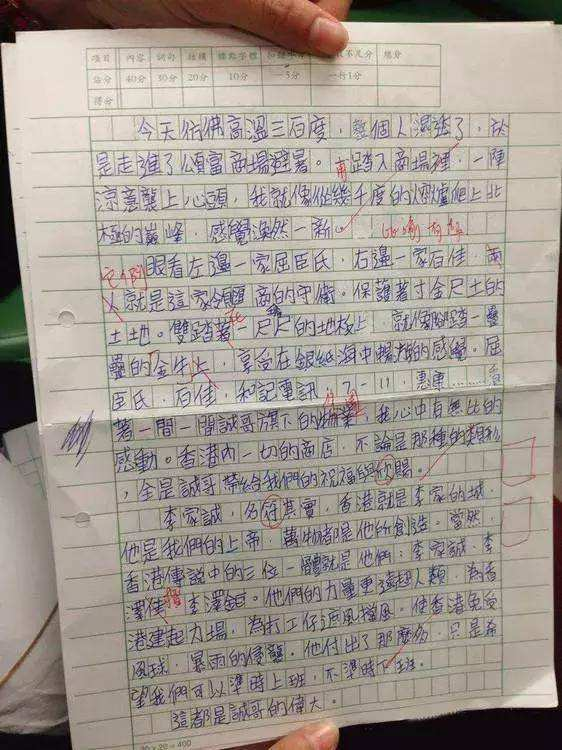 項目 內容 詞句 結構 標點字體 總分
佔分 40分 30分 20分 10分 5分 一行1分
得分
今天彷彿高溫三百度,整個人濕透了,於
是走進了領富商場避暑。再踏入商場裡,一陣
涼意襲上心頭,我就像從幾千度的火爐爬上北
極的巔峰,感覺渙然一新。
它們 眼看左邊一家屈臣氏,右邊一家百佳,兩
人就是這家領匯商的守衛。保護著寸金尺土的
土地。雙踏著一尺尺的地板上,就像腳踏一疊
疊的金牛上,享受在銀紙海中暢游的感覺。屈
臣氏,百佳,和記電訊,7-11,惠康……看
著一間一間誠哥旗下的,我心中有無比的
感動。香港內一切的商店,不論是那種的類型
,全是誠哥帶給我們的祝福與欣賜。
李家誠,名符其實,香港就是李家的城,
他是我們的上帝,萬物都是他所創造。當然,
香港傳說中的三位一體就是他們:李家誠、李
澤楷、李澤鉅。他們的力量更遠超人類,為香
港建起力場,為打工仔遮風擋風。使香港免受
風球,暴雨的侵襲。他付出了那麼多,只是希
望我們可以準時上班,不準時下班。
這都是誠哥的偉大。
20×20=400